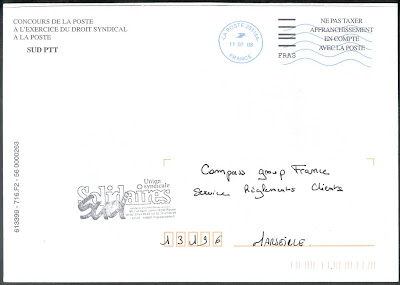 CONCOURS DE LA POSTE
A L'EXERCICE DU DROIT SYNDICAL
A LA POSTE
SUD PTT
LA POSTE
FRANCE
FRAS
NE PAS TAXER
AFFRANCHISSEMENT
EN COMPTE
AVEC LA POSTE
613899 - 716.F2 - 56 0000263
Union
syndicale
Solidaires
Sud
Compass group France
Service Règlements Clients
13196 MARSEILLE